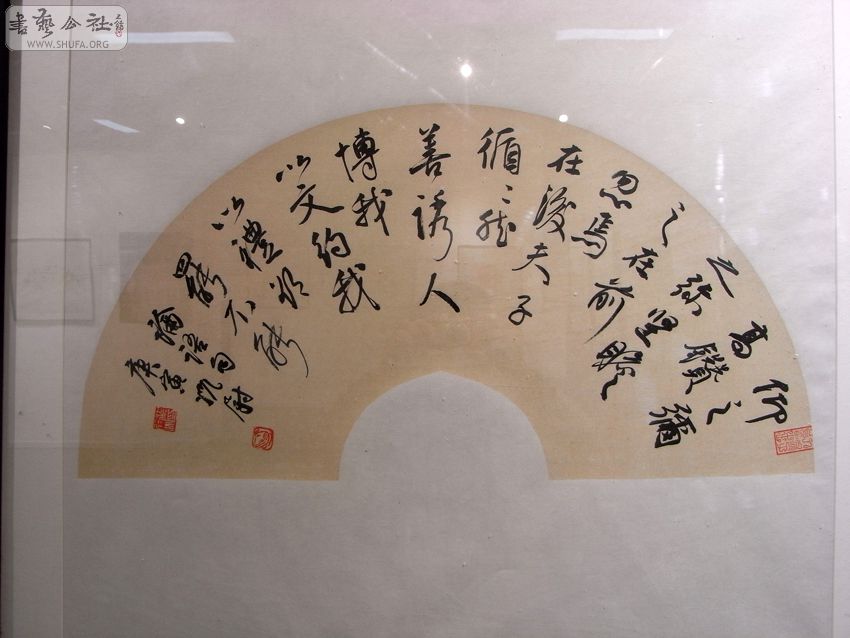 書藝公社
WWW.SHUFA.ORG
仰之彌
高鑽
之弥坚瞻
之在前
忽焉
在後夫子
循〻然
善誘人
博我
以文約我
以禮欲
罷不能
論語句
庚寅